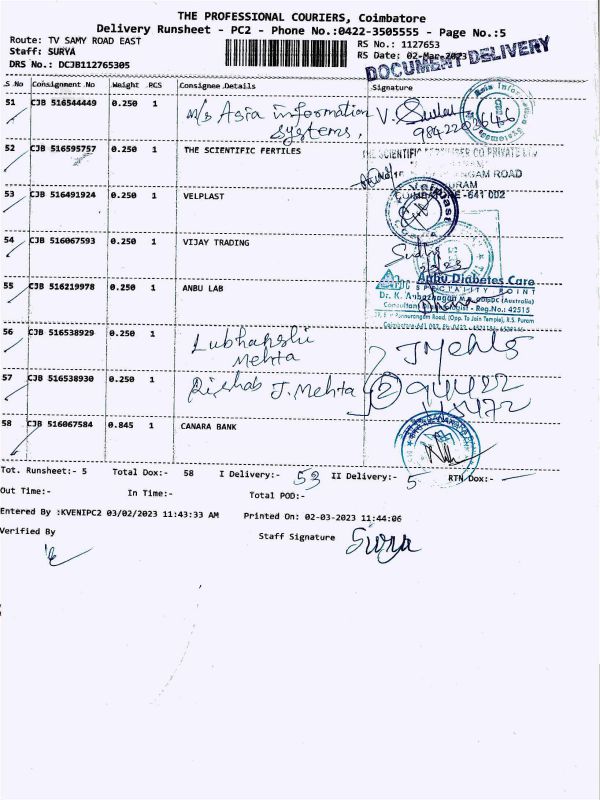 THE PROFESSIONAL COURIERS, Coimbatore
Delivery Runsheet - PC2 - Phone No.:0422-3505555 - Page No.:5
Route: TV SAMY ROAD EAST
Staff: SURYA
DRS No.: DCJB112765305
RS No.: 1127653
RS Date: 02-Mar-2023
DOCUMENT DELIVERY
S No Consignment No Weight PCS Consignee Details Signature
51 CJB 516544449 0.250 1 M/s Asia information systems, V.
52 CJB 516595757 0.250 1 THE SCIENTIFIC FERTILES
THE SCIENTIFIC CO PRIVATE LTD
ROAD
COIMBATORE -641 002
53 CJB 516491924 0.250 1 VELPLAST
Velplast
54 CJB 516067593 0.250 1 VIJAY TRADING
Sudha
55 CJB 516219978 0.250 1 ANBU LAB
Anbu Diabetes Care
SPECIALITY POINT
Dr. K. Anbazhagan
(Australia)
Reg.No.: 42515
(Opp. To Jain Temple), R.S. Puram
56 CJB 516538929 0.250 1 Lubhanshi Mehta
J Mehta
57 CJB 516538930 0.250 1 Rishab J. Mehta 2 94422
58 CJB 516067584 0.845 1 CANARA BANK
Tot. Runsheet:- 5 Total Dox:- 58 I Delivery:- 53 II Delivery:- 5 RTN Dox:- —
Out Time:- In Time:- Total POD:-
Entered By :KVENIPC2 03/02/2023 11:43:33 AM Printed On: 02-03-2023 11:44:06
Verified By Staff Signature Surya